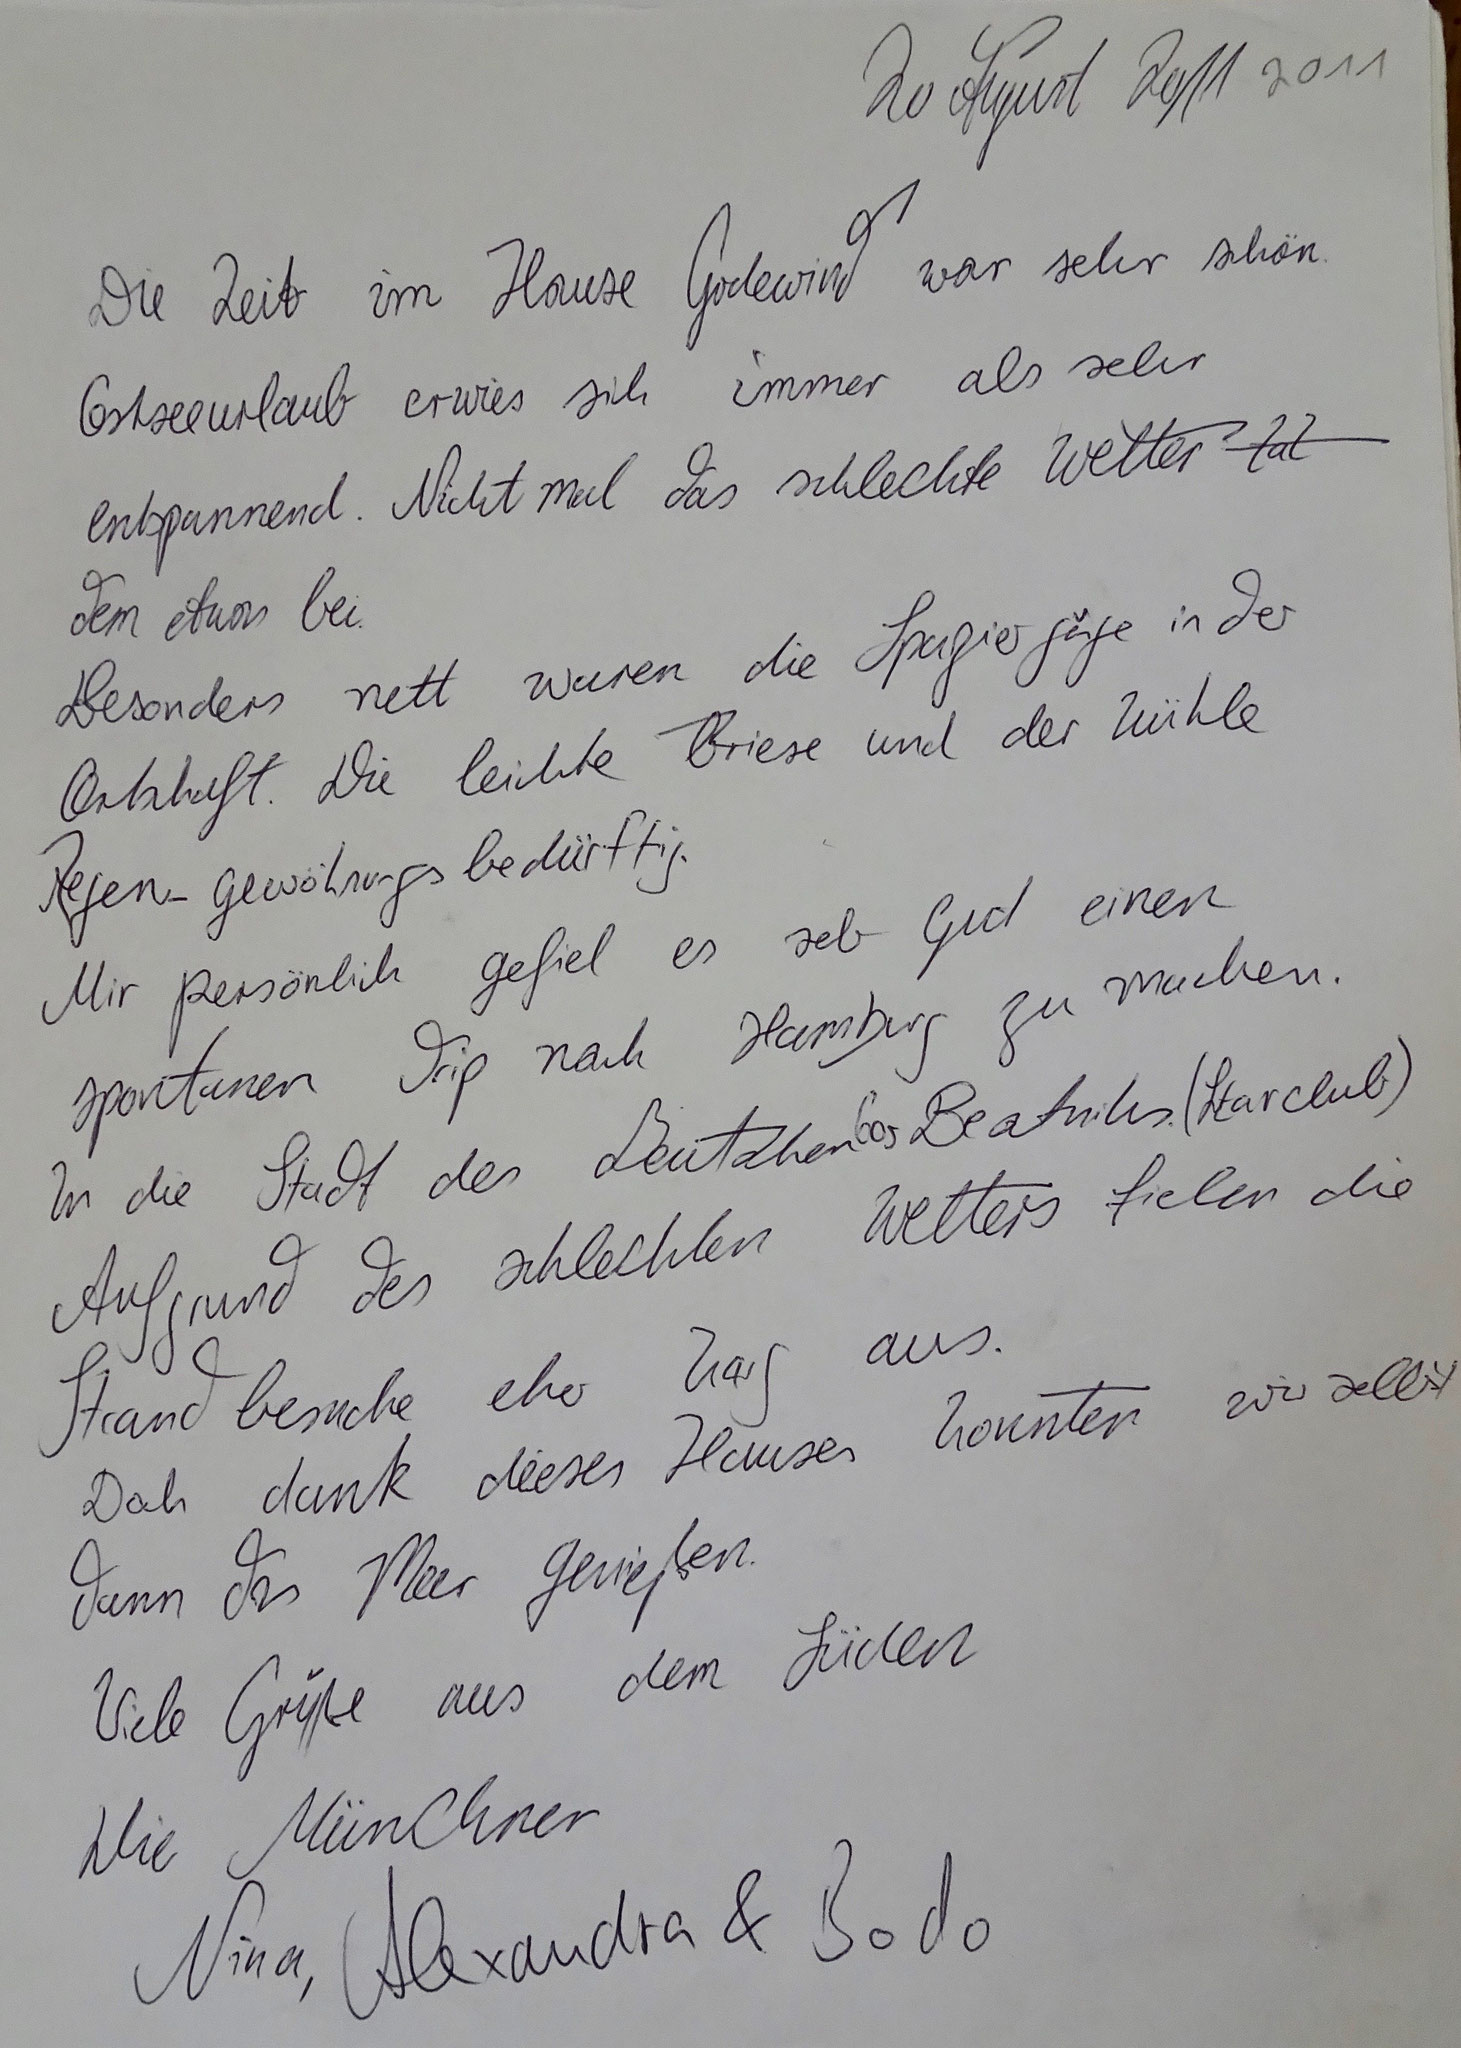 20 August 2011 2011
Die Zeit im Hause Godewind war sehr schön.
Ostseeurlaub erwies sich immer als sehr
entspannend. Nicht mal das schlechte Wetter tat
dem etwas bei.
Besonders nett waren die Spaziergänge in der
Ortschaft. Die leichte Briese und der kühle
Regen - gewöhnungsbedürftig.
Mir persönlich gefiel es sehr gut einen
spontanen Trip nach Hamburg zu machen.
In die Stadt des Deutschen Beatniks. (Starclub)
Aufgrund des schlechten Wetters fielen die
Strandbesuche eher karg aus.
Doch dank dieses Hauses konnten wir selbst
dann das Meer genießen.
Viele Grüße aus dem Süden
Die Münchner
Nina, Alexandra & Bodo